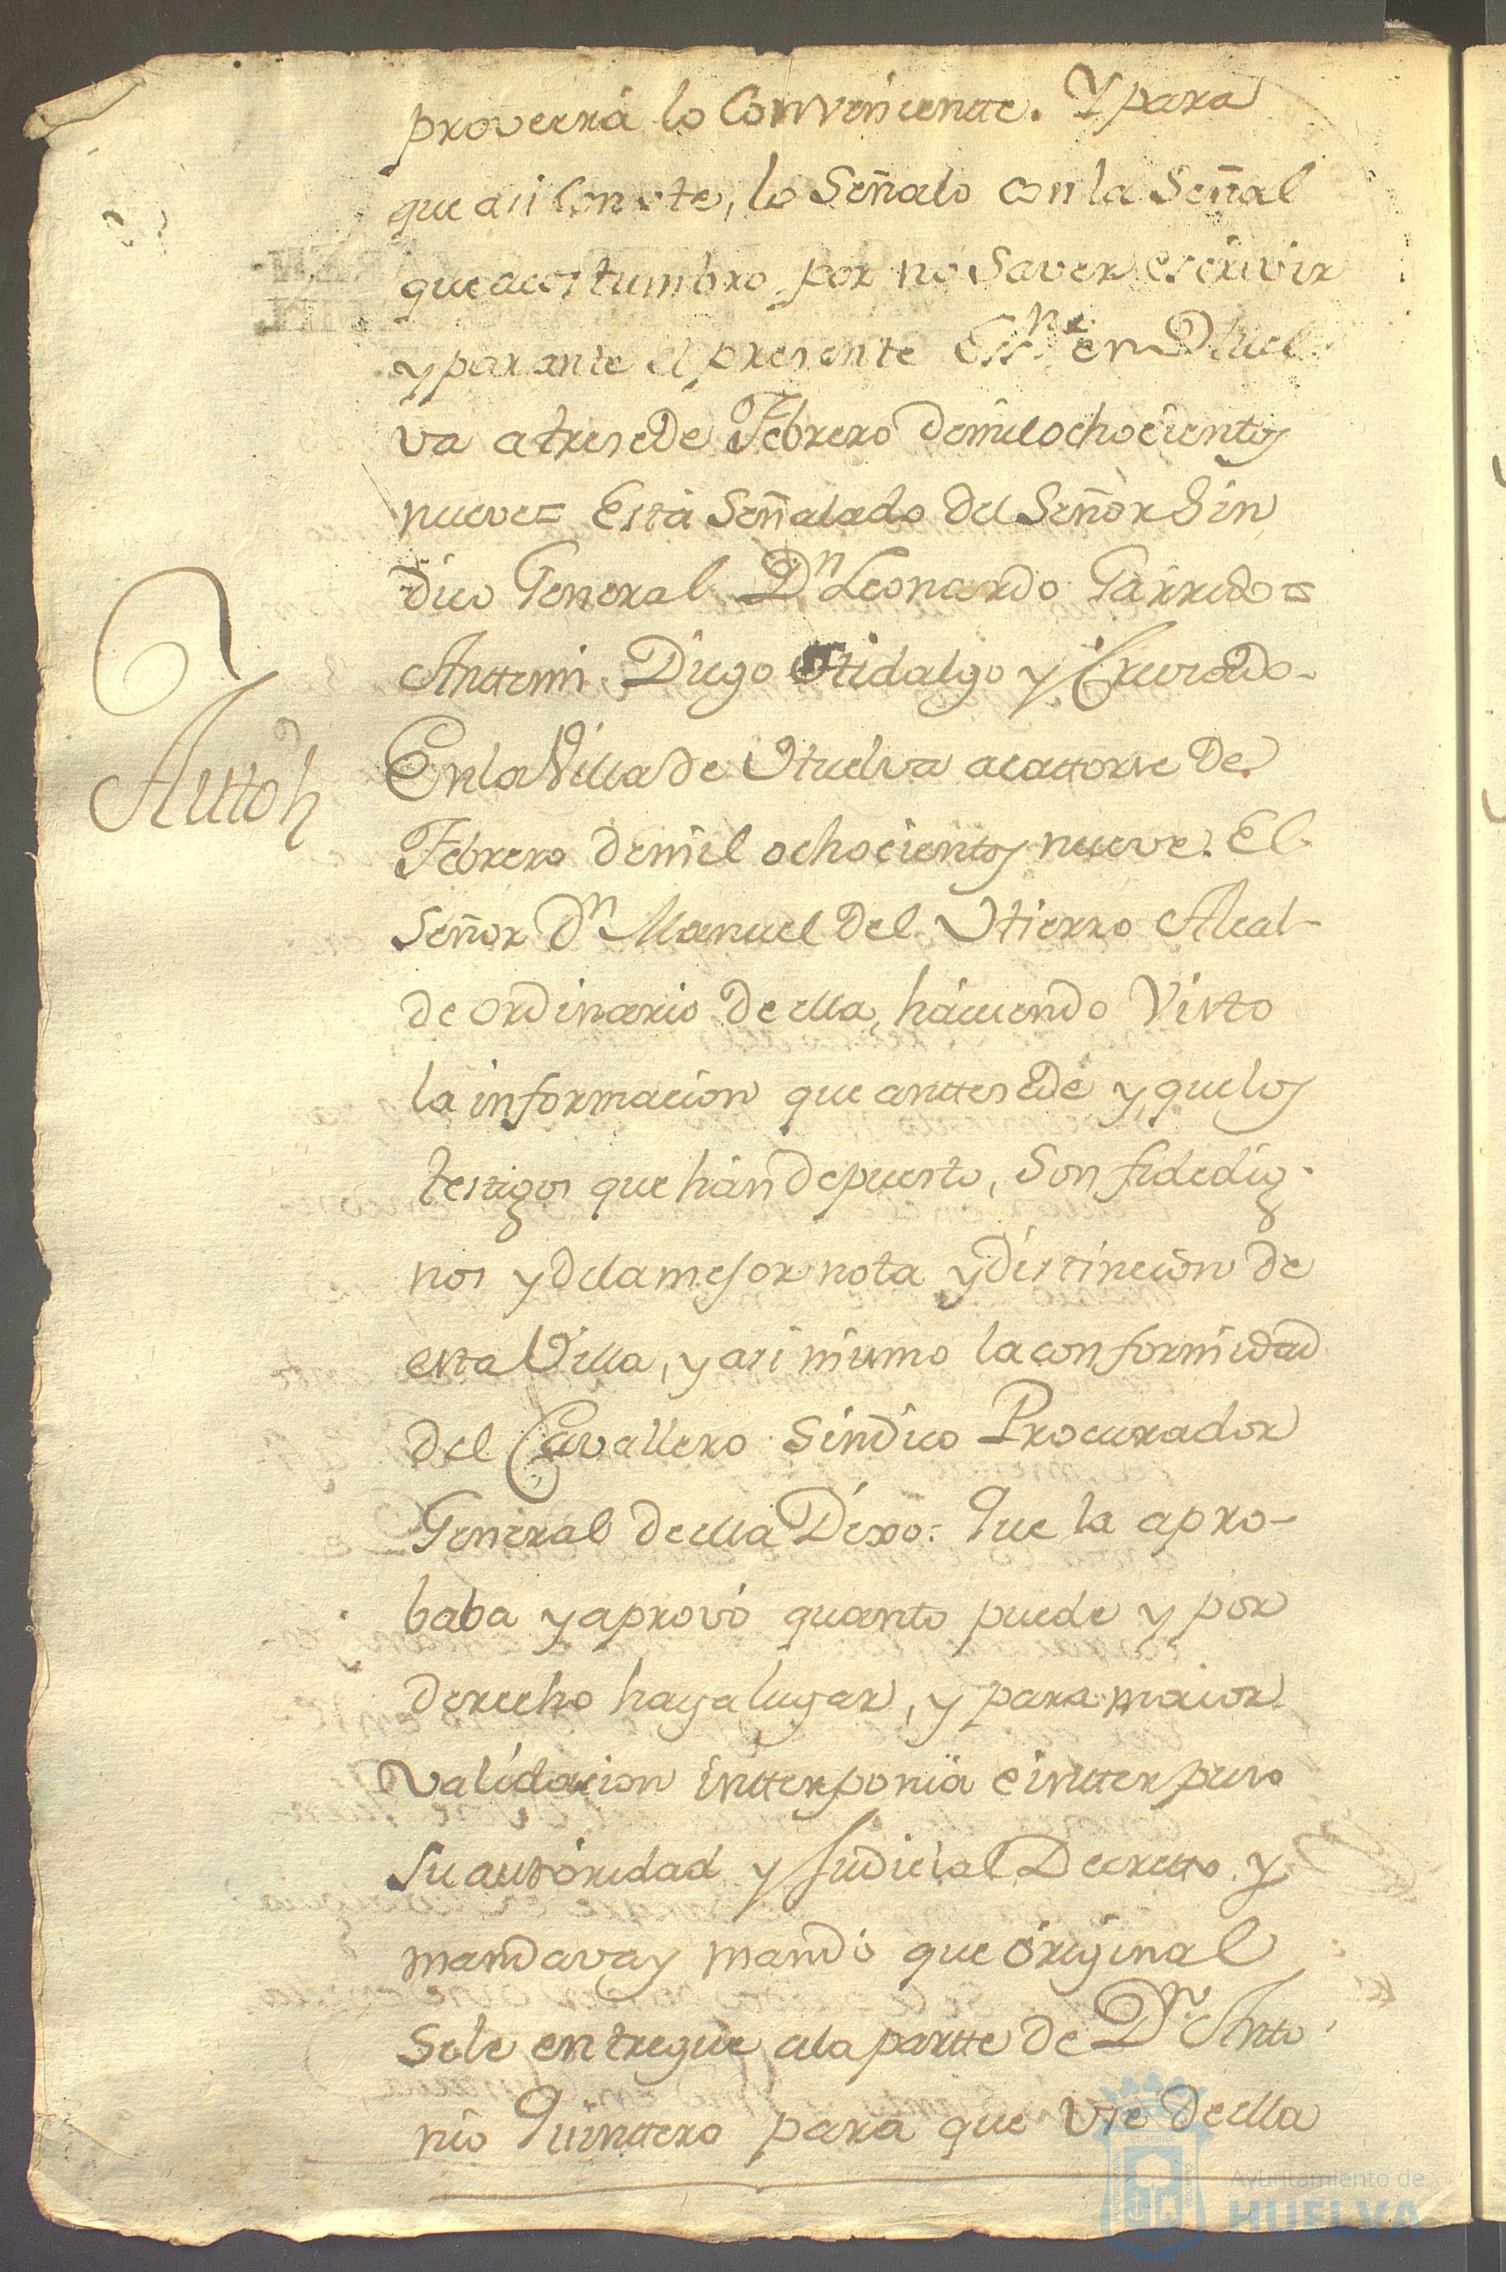 proveerá lo Conveniente. Y para
que asi Conste, lo Señalo con la Señal
que acostumbro, por no Saver escrivir
y por ante el presente Essno. en Huel
va a tres de Febrero de mil ochocientos
nueve= Está Señalado del Señor Sin
dico General Dn Leonardo Garrido=
Anttemi Diego Hidalgo y
Autto
En la Villa de Huelva a cattorse de
Febrero de mil ochocientos nueve. El
Señor Dn Manuel del Hierro Alcal-
de ordinario de ella, haviendo Visto
la informacion que anttesede y que los
testigos que hán depuesto, Son fidedig
nos y de la mejor nota y distincion de
esta Villa, y asi mismo la conformidad
del Cavallero Sindico Procurador
General de ella Dixo: Que la apro-
baba y aprovó quanto puede y por
derecho haya lugar, y para maior
validacion intterponia e intterpuso
Su autoridad y Judicial Decretto. y
mandava y mandó que original
Se le entregue a la partte de Dn Antto
nio Quinttero para que Use de ella
Ayuntamiento de
HUELVA